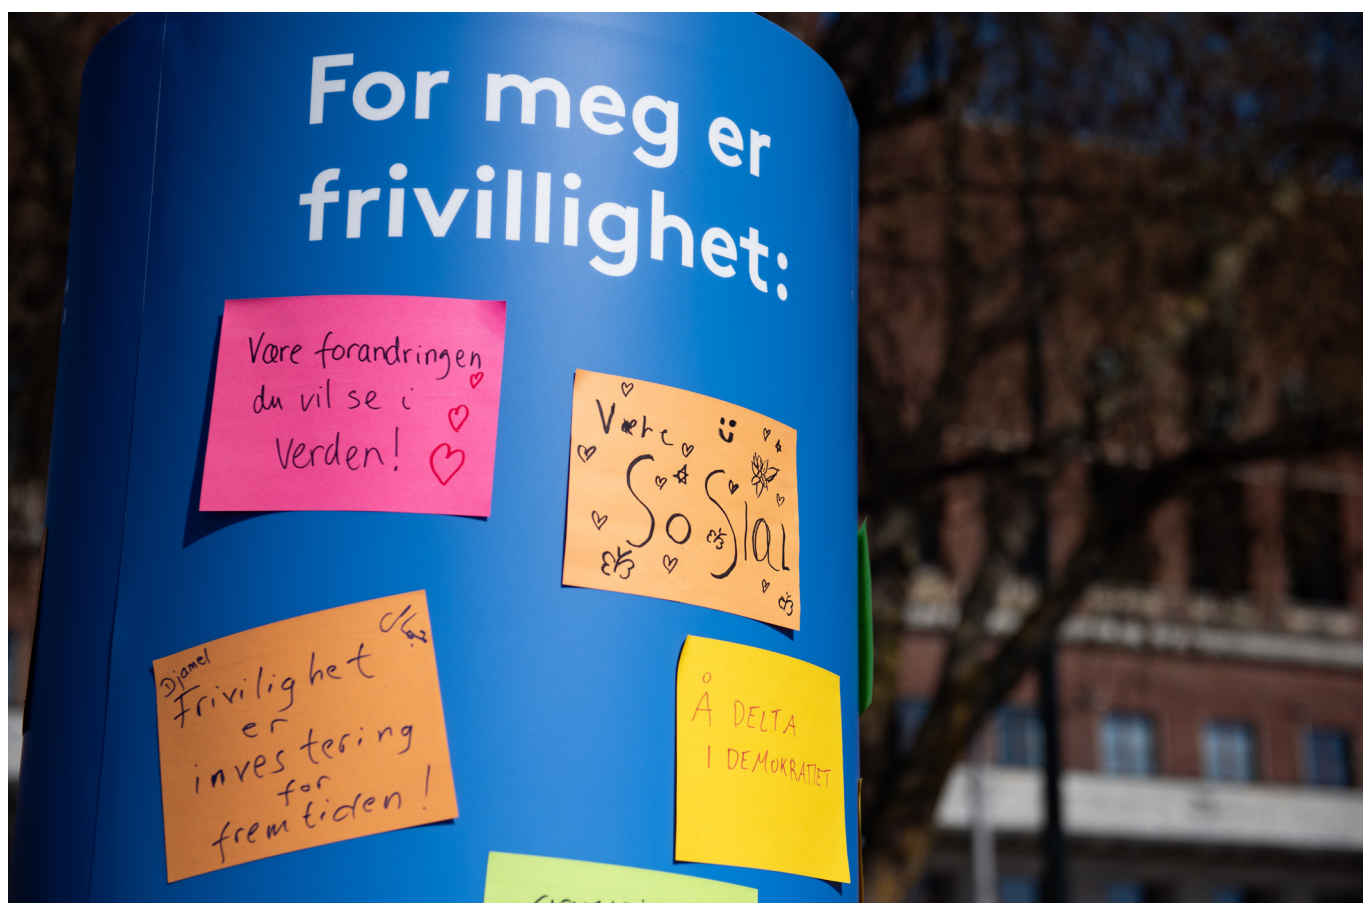 For meg er
frivillighet:
Være forandringen
du vil se i
verden!
Være
SoSial
Djamel
Frivilighet
er
investering
for
fremtiden!
Å DELTA
I DEMOKRATIET